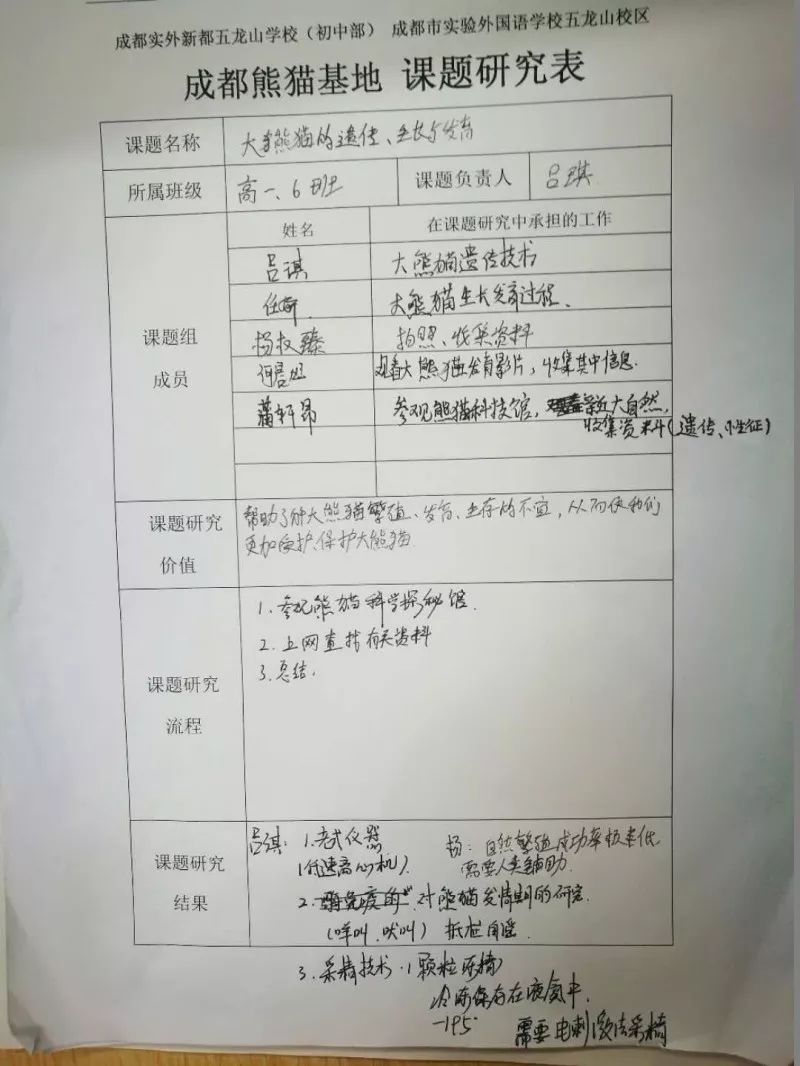 成都实外新都五龙山学校（初中部） 成都市实验外国语学校五龙山校区
成都熊猫基地 课题研究表
课题名称 大熊猫的遗传、生长与发育
所属班级 高一、6班 课题负责人 吕琪
姓名 在课题研究中承担的工作
课题组
成员
吕琪 大熊猫遗传技术
大熊猫生长发育过程.
杨权臻 拍照、收集资料
观看大熊猫发育影片，收集其中信息.
蒲轩昂 参观熊猫科技馆，亲近大自然，
收集资料(遗传、性征)
课题研究
价值
帮助了解大熊猫繁殖、发育、生存的不宜，从而使我们
更加爱护、保护大熊猫.
课题研究
流程
1. 参观熊猫科学探秘馆.
2. 上网查找有关资料
3. 总结.
课题研究
结果
吕琪: 1. 老式仪器 杨: 自然繁殖成功率极其低,
(低速离心机). 需要人类辅助.
2. 对熊猫发情期的研究
(咩叫、吠叫)
3. 采精技术. (颗粒冻精)
冷冻保存在液氮中.
-195°
需要电刺激法采精